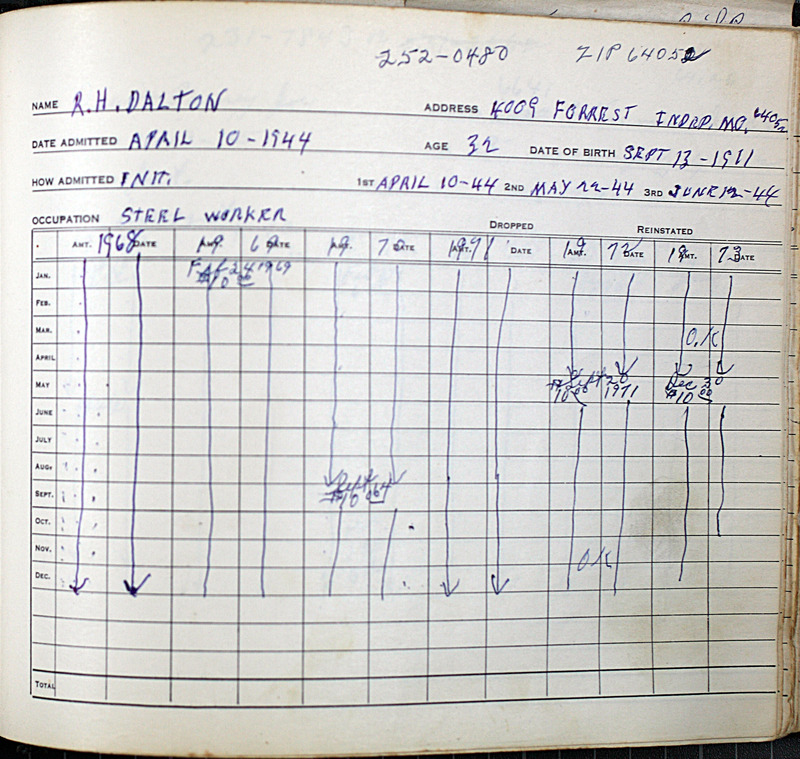 252-0480 ZIP 64052
NAME R.H. DALTON ADDRESS 4009 FORREST INDEP. MO. 64052
DATE ADMITTED APRIL 10-1944 AGE 32 DATE OF BIRTH SEPT 13-1911
HOW ADMITTED INIT. 1ST APRIL 10-44 2ND MAY 22-44 3RD JUNE 12-44
OCCUPATION STEEL WORKER DROPPED REINSTATED
AMT. 1968 DATE AMT. 1969 DATE 1970 DATE AMT. 1971 DATE AMT. 1972 DATE AMT. 1973 DATE
JAN. Feb 24 1969
$10.00
FEB.
MAR. O.K
APRIL
MAY Sept 20 Dec 30
$10.00 1971 $10.00
JUNE
JULY
AUG.
SEPT. Sept 4
$10.00
OCT.
NOV. OK
DEC.
TOTAL